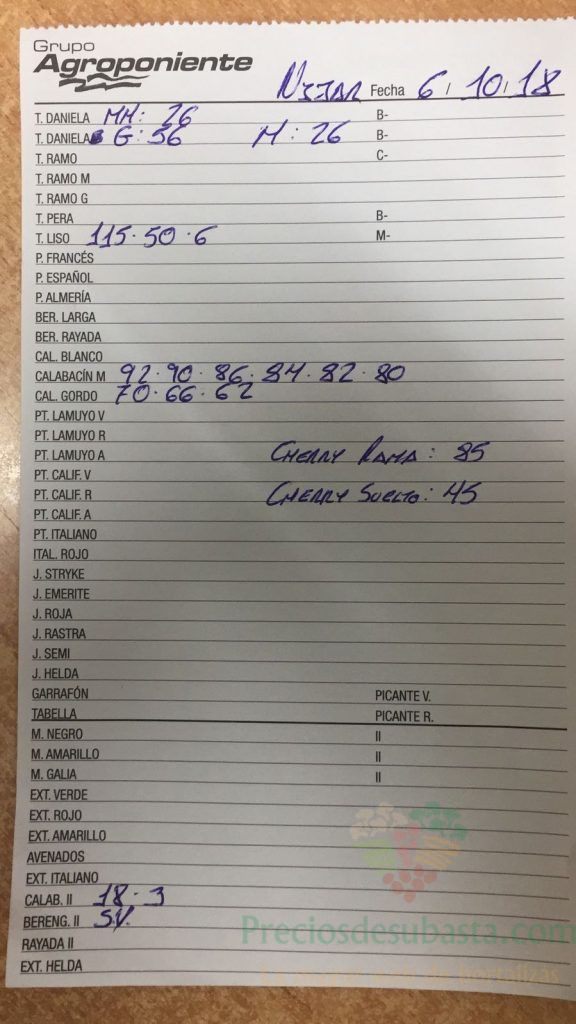 Grupo
Agroponiente
NIJAR Fecha 6 / 10 / 18
T. DANIELA MM: 26 B-
T. DANIELA G: 56 M: 26 B-
T. RAMO C-
T. RAMO M
T. RAMO G
T. PERA B-
T. LISO 115·50·6 M-
P. FRANCÉS
P. ESPAÑOL
P. ALMERÍA
BER. LARGA
BER. RAYADA
CAL. BLANCO
CALABACÍN M 92·90·86·84·82·80
CAL. GORDO 70·66·62
PT. LAMUYO V
PT. LAMUYO R
PT. LAMUYO A CHERRY RAMA: 85
PT. CALIF. V
PT. CALIF. R CHERRY SUELTO: 45
PT. CALIF. A
PT. ITALIANO
ITAL. ROJO
J. STRYKE
J. EMERITE
J. ROJA
J. RASTRA
J. SEMI
J. HELDA
GARRAFÓN PICANTE V.
TABELLA PICANTE R.
M. NEGRO II
M. AMARILLO II
M. GALIA II
EXT. VERDE
EXT. ROJO
EXT. AMARILLO
AVENADOS
EXT. ITALIANO
CALAB. II 18·3
BERENG. II S.V.
Preciosdesubasta.com
RAYADA II
EXT. HELDA